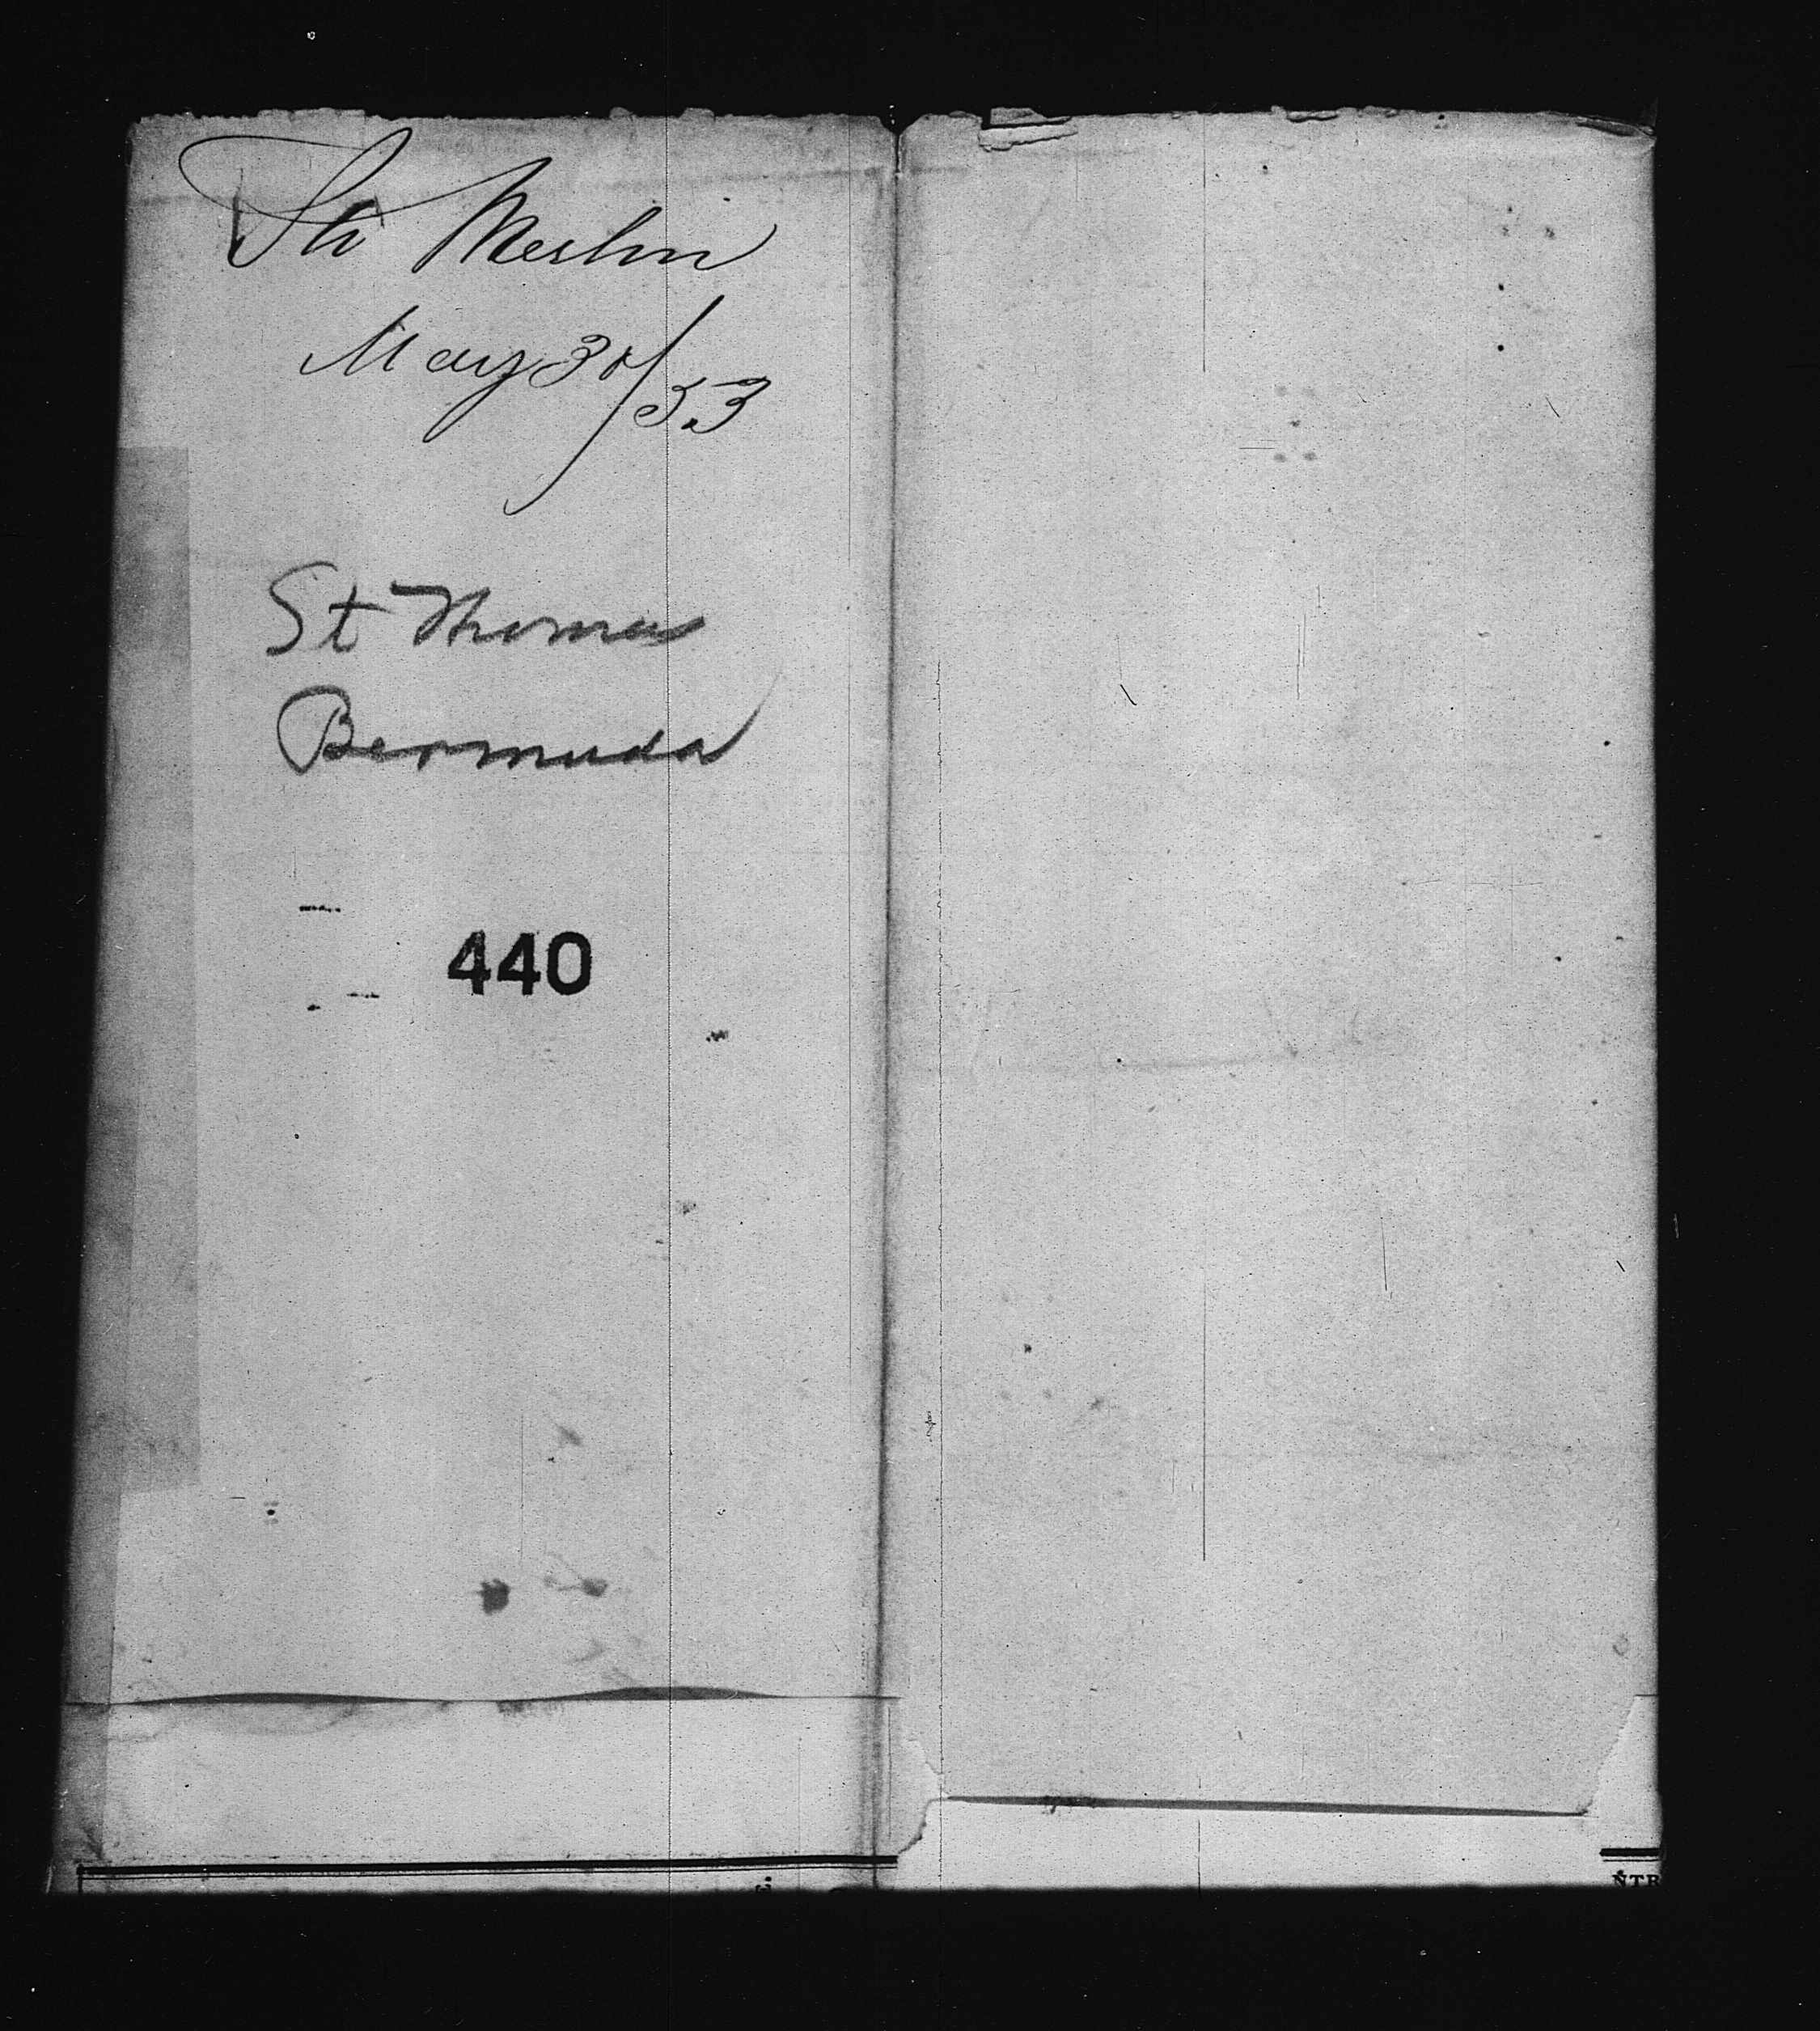 Str Merlin
May 30/53
St Thomas
Bermuda
440
NTR